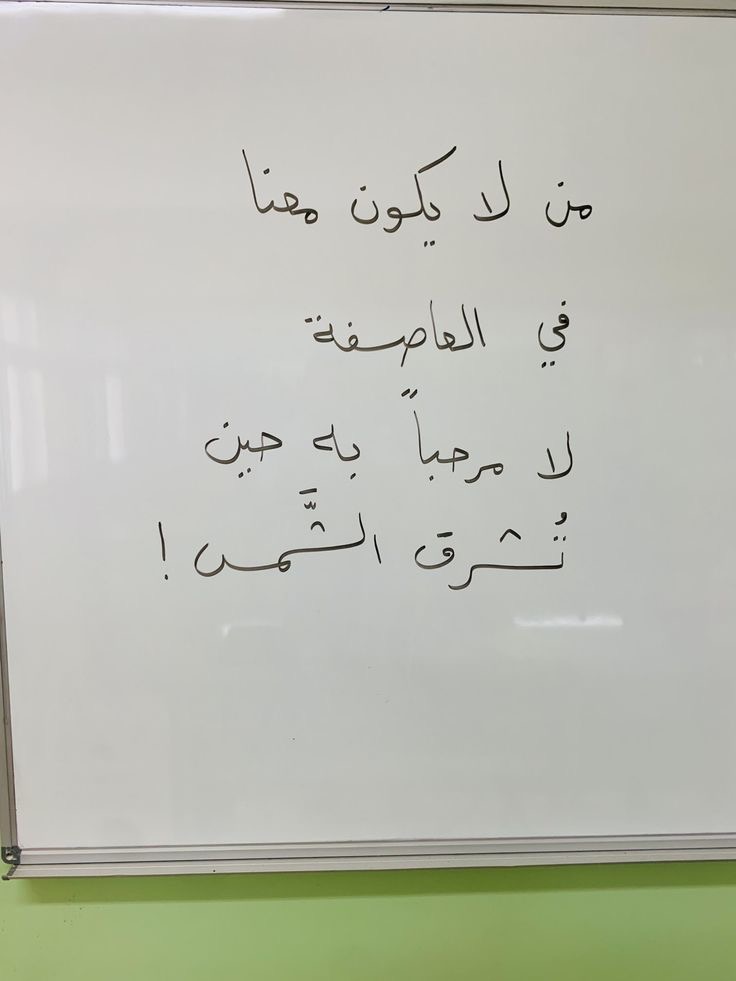 من لا يكون معنا
في العاصفة
لا مرحباً به حين
تُشرق الشَّمس !